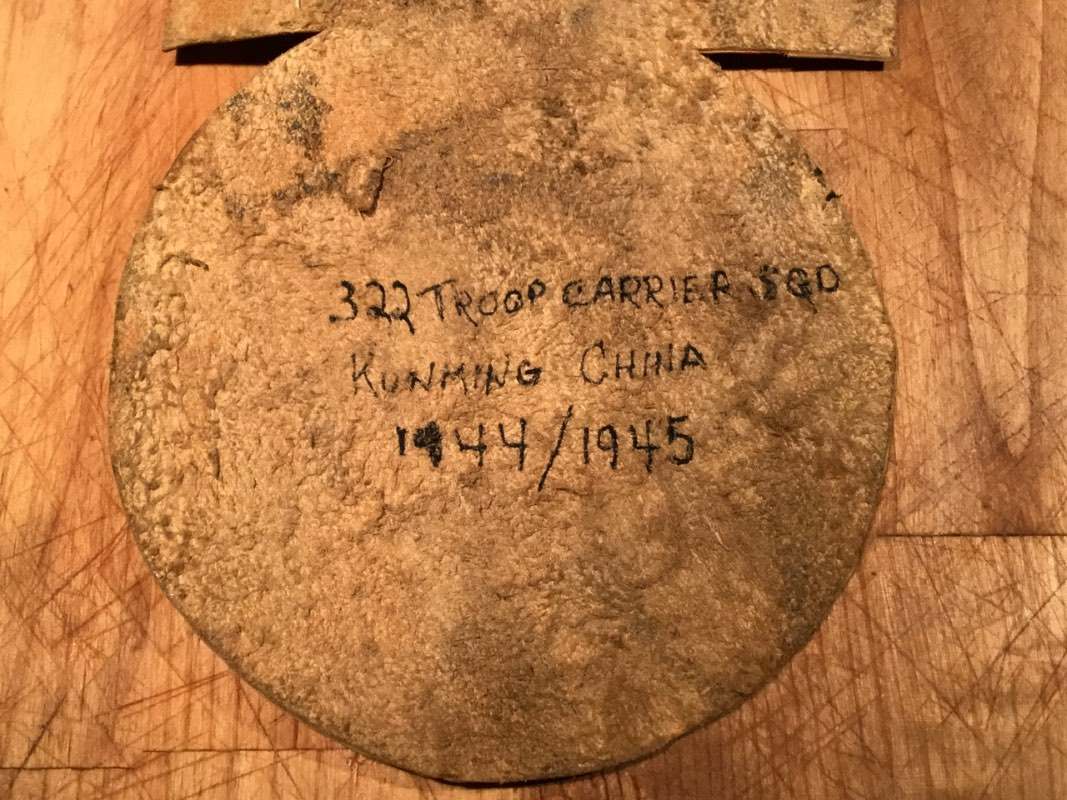 322 TROOP CARRIER SQD
KUNMING CHINA
1944/1945